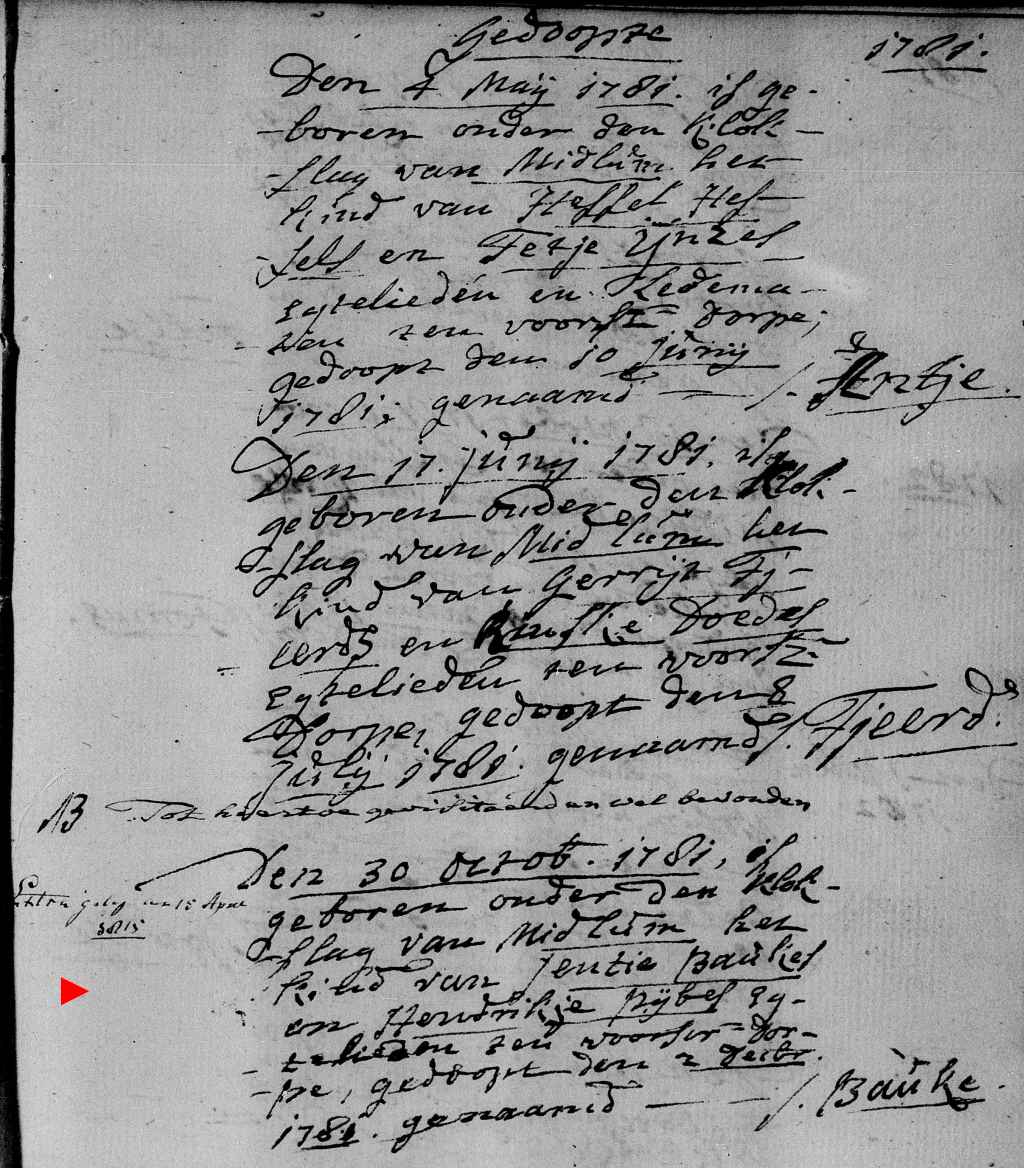 Gedoopte 1781.
Den 4 Maÿ 1781. is ge-
-boren onder den Klok-
-slag van Midlum het
kind van Hessel Hes-
-sels en Tetje Ijnzes
Egtelieden en Ledema-
-ten ten voorsz dorpe;
gedoopt den 10 Junij
1781; genaamd — /. Antje.
Den 17. Junij 1781. is
geboren onder den Klok-
-slag van Midlum het
kind van Gerrijt Tj-
-eerds en Rinske Doedes
Egtelieden ten voorsz
Dorpe, gedoopt den 8
Julij 1781. genaamd /. Tjeerd.
NB Tot hiertoe gevisiteerd en wel bevonden
Den 30 Octob. 1781, is
geboren onder den Klok-
-slag van Midlum het
kind van Jentie Baukes
en Hendrikje Pijbes Eg-
-telieden ten voorsr dor-
-pe, gedoopt den 2 Decbr.
1781. genaamd — /. Bauke.
15 April
1815